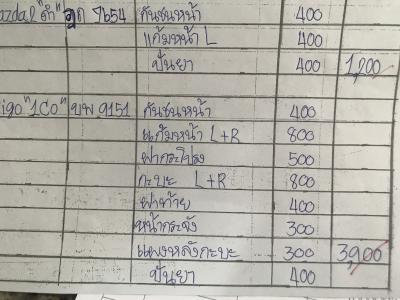 azda2 "ดำ" 7654 กันชนหน้า 400
แก้มหน้า L 400
ปั่นยา 400 1,200
"1CO" ขพ 9151 กันชนหน้า 400
แก้มหน้า L+R 800
ฝากระโปรง 500
กะบะ L+R 800
ฝาท้าย 400
หน้ากระจัง 300
แผงหลังกะบะ 300 3,900
ปั่นยา 400